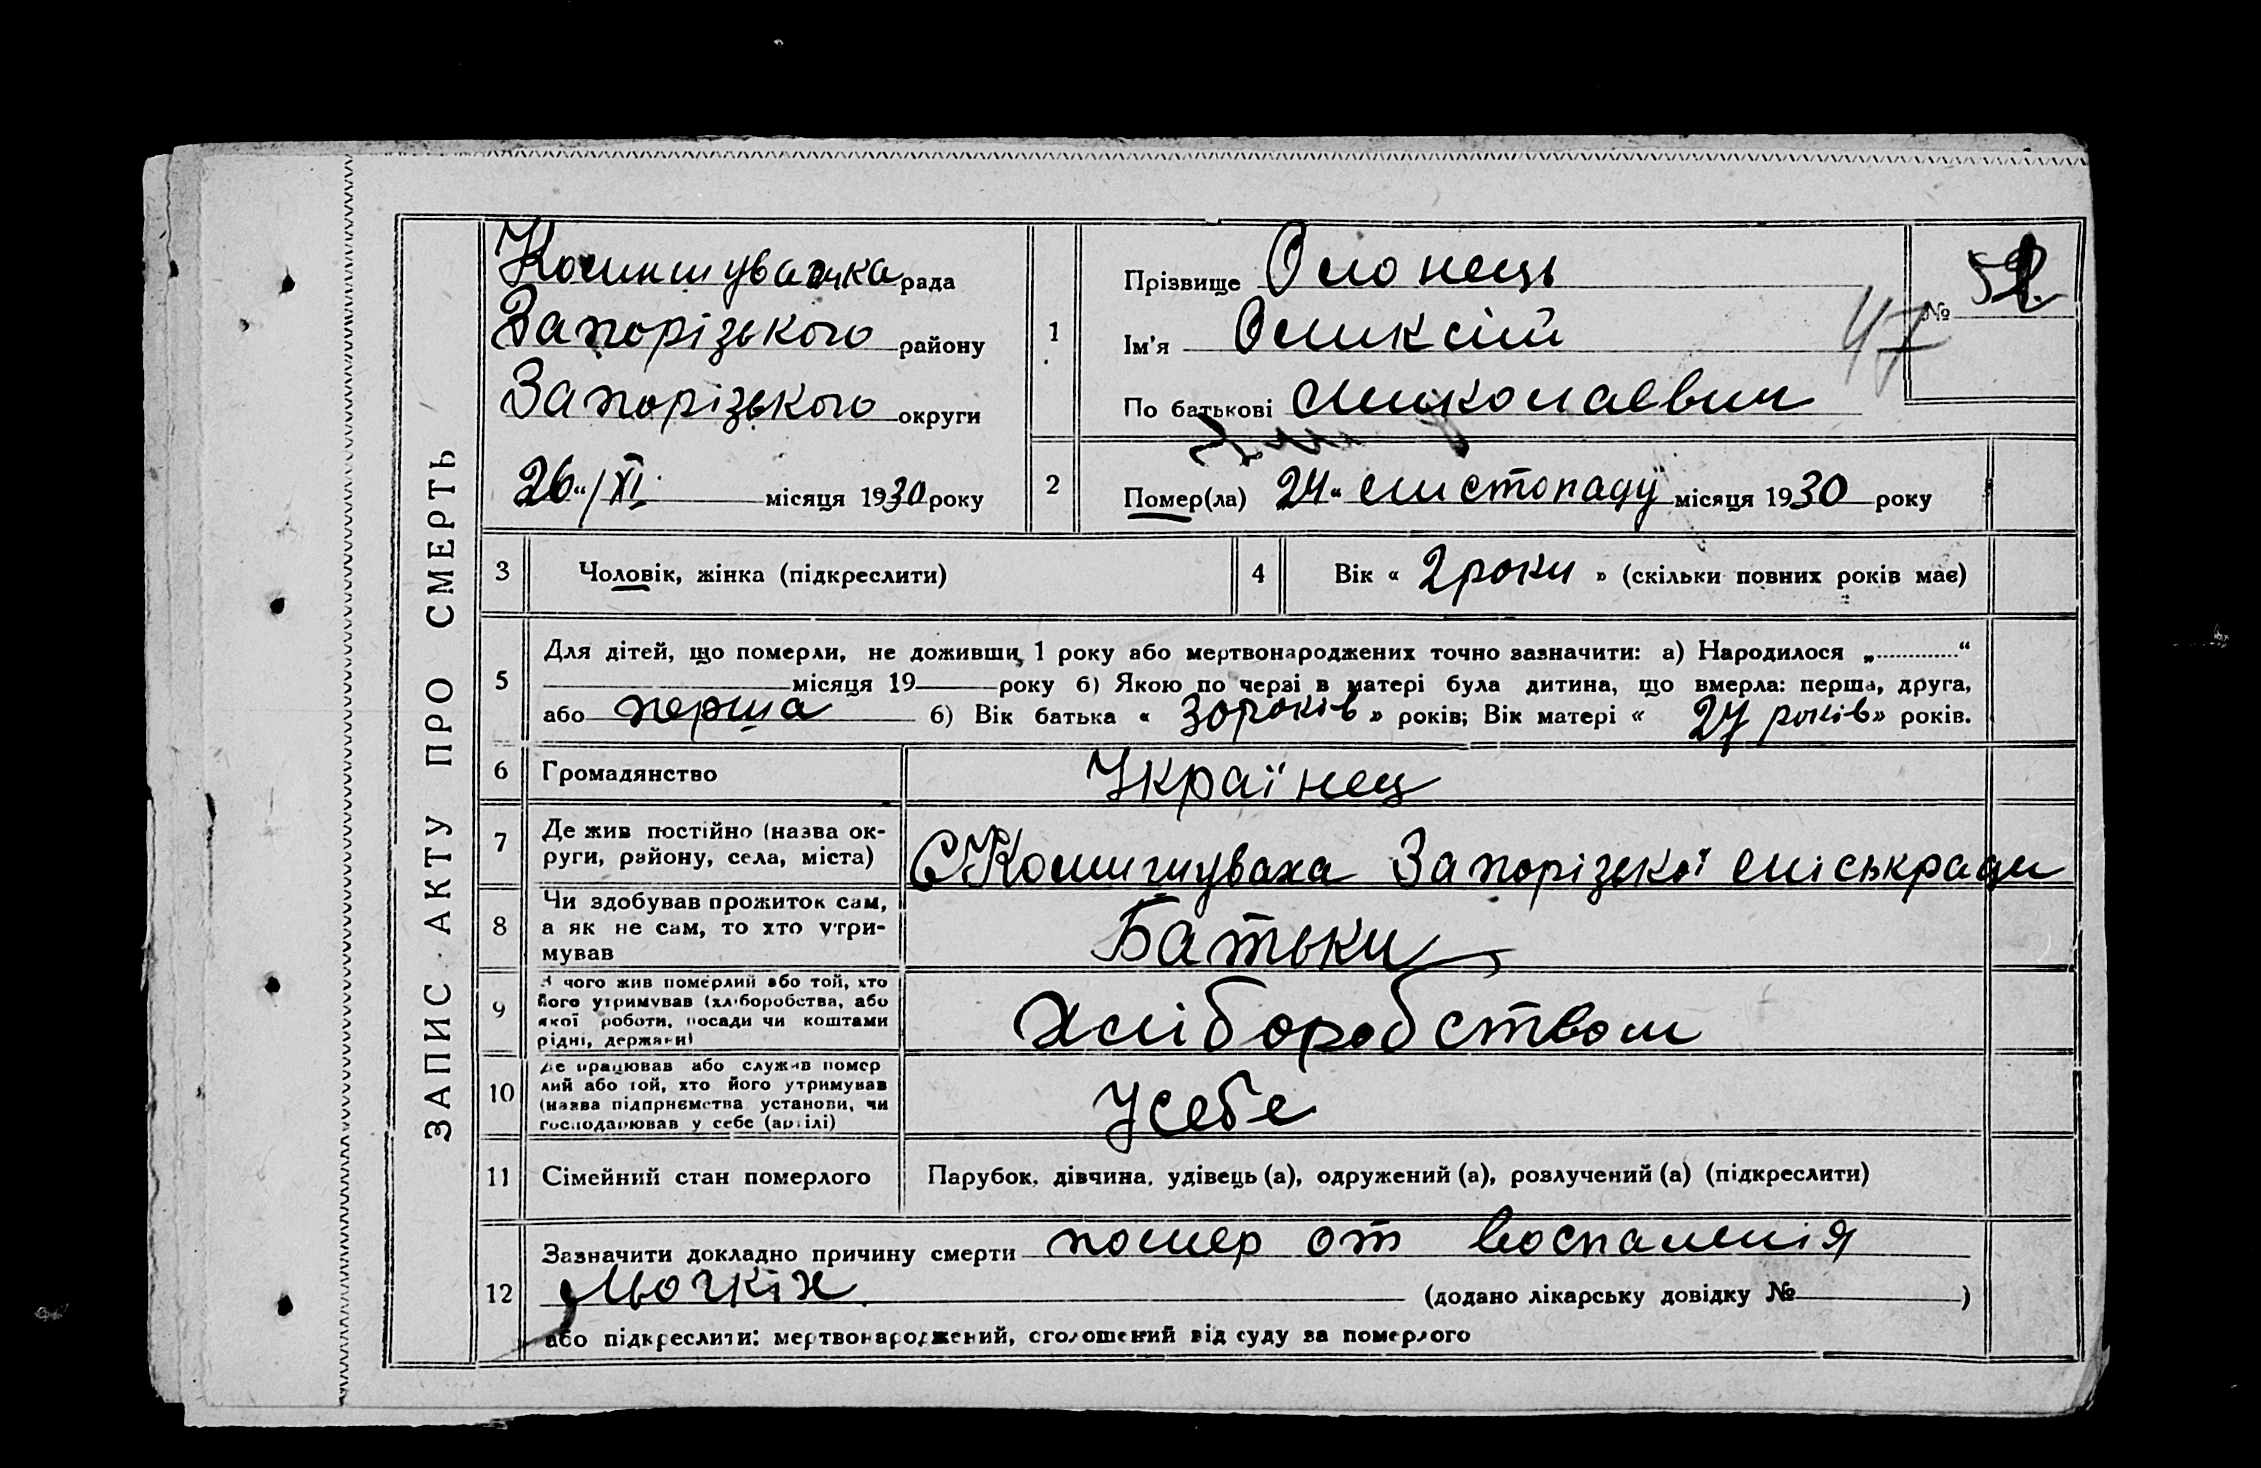 ЗАПИС АКТУ ПРО СМЕРТЬ
рада
Запорізького району
Запорізького округи
26"/XI. місяця 1930 року
1
Прізвище Олонець
Ім'я Оликсій
По батькові Миколаевич
№ 52
47
2
Помер(ла) 24" листопаду місяця 1930 року
3
Чоловік, жінка (підкреслити)
4
Вік « 2 роки » (скільки повних років має)
5
Для дітей, що померли, не доживши 1 року або мертвонароджених точно зазначити: а) Народилося „.............“
місяця 19 року б) Якою по черзі в матері була дитина, що вмерла: перша, друга,
або перша б) Вік батька « 30 років » років; Вік матері « 27 років » років.
6
Громадянство
Українец
7
Де жив постійно (назва ок-
руги, району, села, міста)
С Комишуваха Запорізької міськради
8
Чи здобував прожиток сам,
а як не сам, то хто утри-
мував
Батьки
9
З чого жив померлий або той, хто
його утримував (хліборобства, або
якої роботи, посади чи коштами
рідні, держави)
Хліборобством
10
Де працював або служив помер
лий або той, хто його утримував
(назва підприємства установи, чи
господарював у себе (артілі)
Усебе
11
Сімейний стан померлого
Парубок, дівчина, удівець (а), одружений (а), розлучений (а) (підкреслити)
12
Зазначити докладно причину смерти помер от воспаленія
Льогкіх (додано лікарську довідку № )
або підкреслити: мертвонароджений, оголошений від суду за померлого